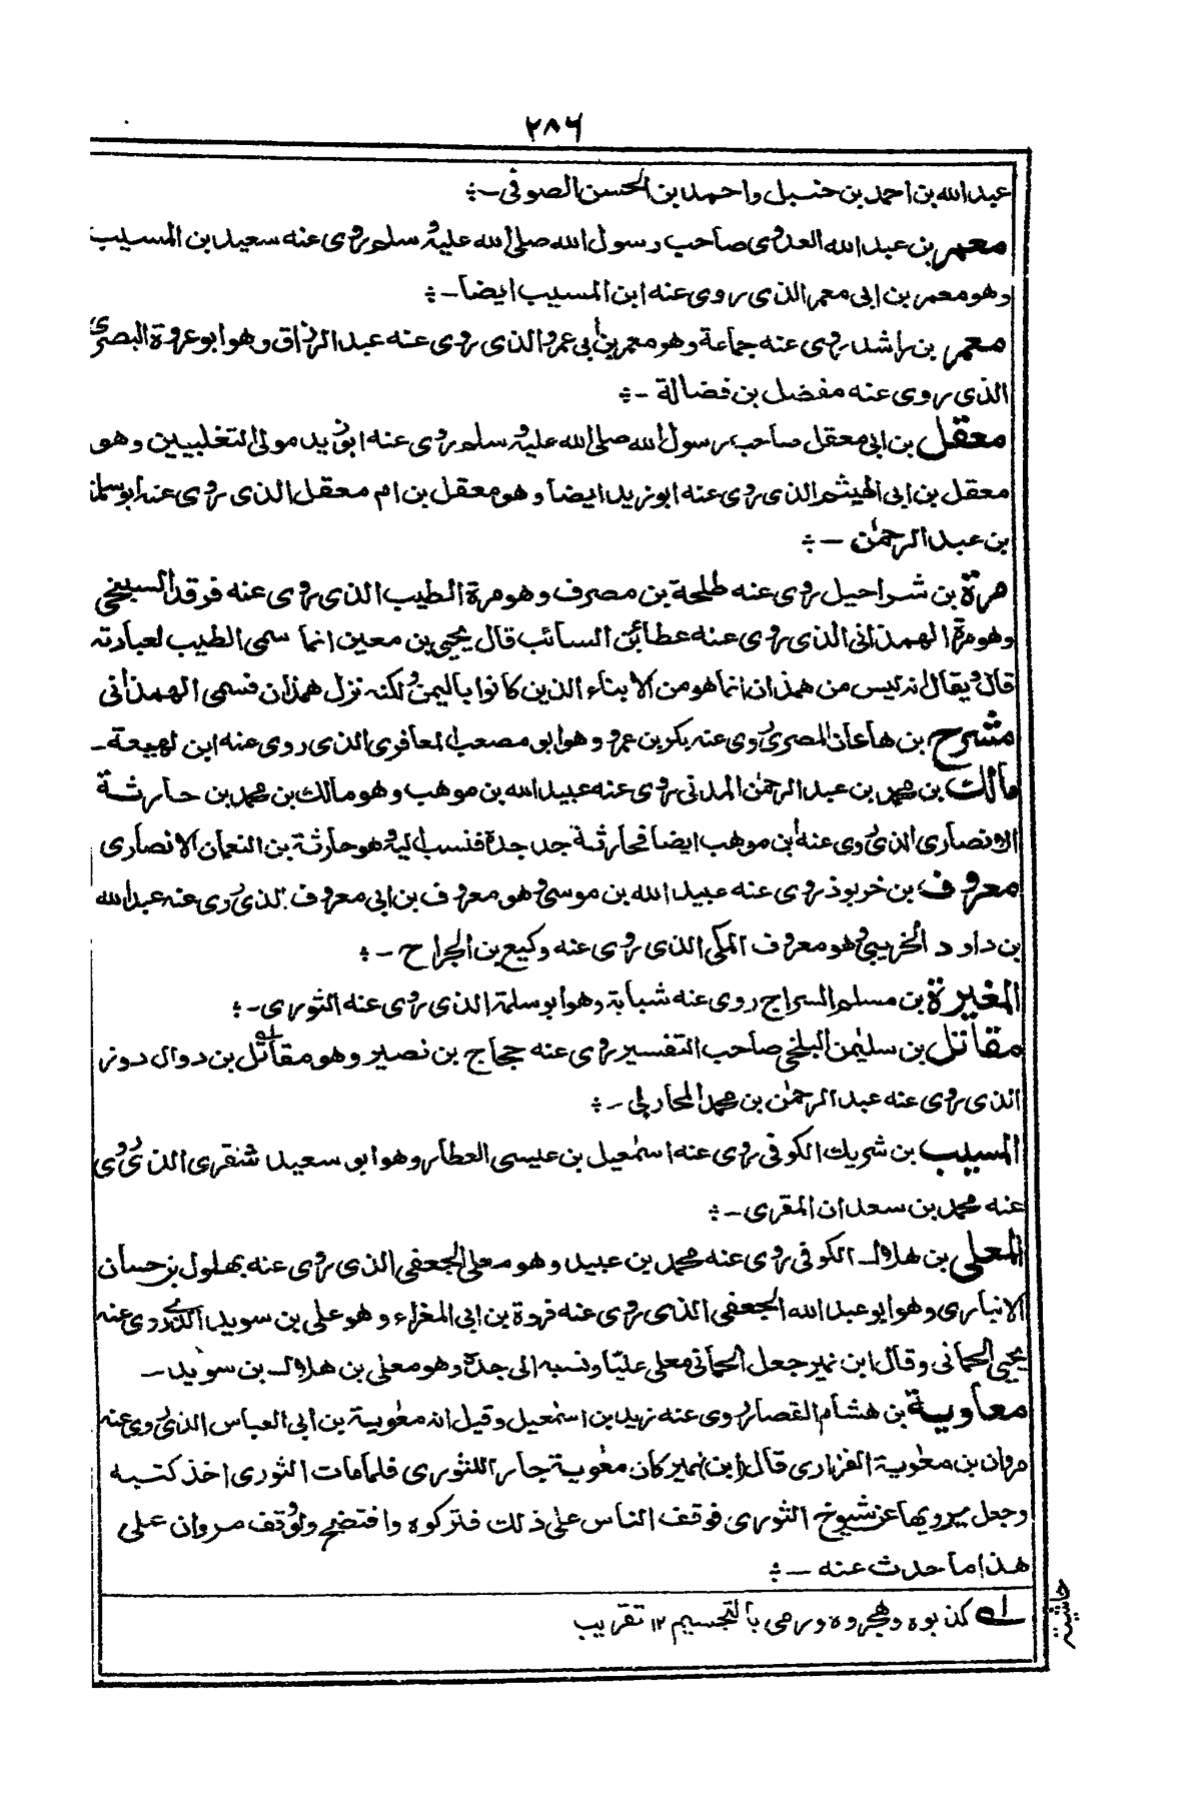 ٢٨٦
عبد الله بن احمد بن حنبل واحمد بن الحسن الصوفى -
معمر بن عبد الله العدوى صاحب رسول الله صلى الله عليه وسلم روى عنه سعيد بن المسيب
وهو معمر بن ابى معمر الذى روى عنه ابن المسيب ايضا -
معمر بن راشد روى عنه جماعة وهو معمر بن ابى عمرو الذى روى عنه عبد الرزاق وهو ابو عروة البصرى
الذى روى عنه مفضل بن فضالة -
معقل بن ابى معقل صاحب رسول الله صلى الله عليه وسلم روى عنه ابو زيد مولى التغلبيين وهو
معقل بن ابى الهيثم الذى روى عنه ابو زيد ايضا وهو معقل بن ام معقل الذى روى عنه ابو سلمة
بن عبد الرحمٰن -
مرة بن شراحيل روى عنه طلحة بن مصرف وهو مرة الطيب الذى روى عنه فرقد السبخى
وهو مرة الهمذانى الذى روى عنه عطاء بن السائب قال يحيى بن معين انما سمى الطيب لعبادته
قال ويقال انه ليس من همذان انما هو من الابناء الذين كانوا باليمن ولكنه نزل همذان فسمى الهمذانى
مشرح بن هاعان المصرى روى عنه بكر بن عمرو وهو ابو مصعب المعافرى الذى روى عنه ابن لهيعة -
مالك بن محمد بن عبد الرحمٰن المدنى روى عنه عبيد الله بن موهب وهو مالك بن محمد بن حارثة
الانصارى الذى روى عنه ابن موهب ايضا فحارثة جد جده فنسب اليه وهو حارثة بن النعمان الانصارى
معروف بن خربوذ روى عنه عبيد الله بن موسى وهو معروف بن ابى معروف الذى روى عنه عبد الله
بن داود الخريبى وهو معروف المكى الذى روى عنه وكيع بن الجراح -
المغيرة بن مسلم السراج روى عنه شبابة وهو ابو سلمة الذى روى عنه الثورى -
مقاتل بن سليمٰن البلخى صاحب التفسير روى عنه حجاج بن نصير وهو مقاتل بن دوال دوز
الذى روى عنه عبد الرحمٰن بن محمد المحاربى -
المسيب بن شريك الكوفى روى عنه اسمٰعيل بن عيسى العطار وهو ابو سعيد شقرى الذى روى
عنه محمد بن سعدان المقرى -
المعلى بن هلال الكوفى روى عنه محمد بن عبيد وهو معلى الجعفى الذى روى عنه بهلول بن حسان
الانبارى وهو ابو عبد الله الجعفى الذى روى عنه فروة بن ابى المغراء وهو على بن سويد الذى روى عنه
يحيى الحمانى وقال ابن نمير جعل الحمانى معلى عليا ونسبه الى جده وهو معلى بن هلال بن سويد -
معاوية بن هشام القصار روى عنه زيد بن اسمٰعيل وقيل انه معٰوية بن ابى العباس الذى روى عنه
مروان بن معٰوية الفزارى قال ابن نمير كان معٰوية جار اللثورى فلما مات الثورى اخذ كتبه
وجعل يرويها عن شيوخ الثورى فوقف الناس على ذلك فتركوه وافتضح ولو وقف مروان على
هذا ما حدث عنه -
حاشيته
له كذبوه وهجروه ورمى بالتجسيم ١٢ تقريب